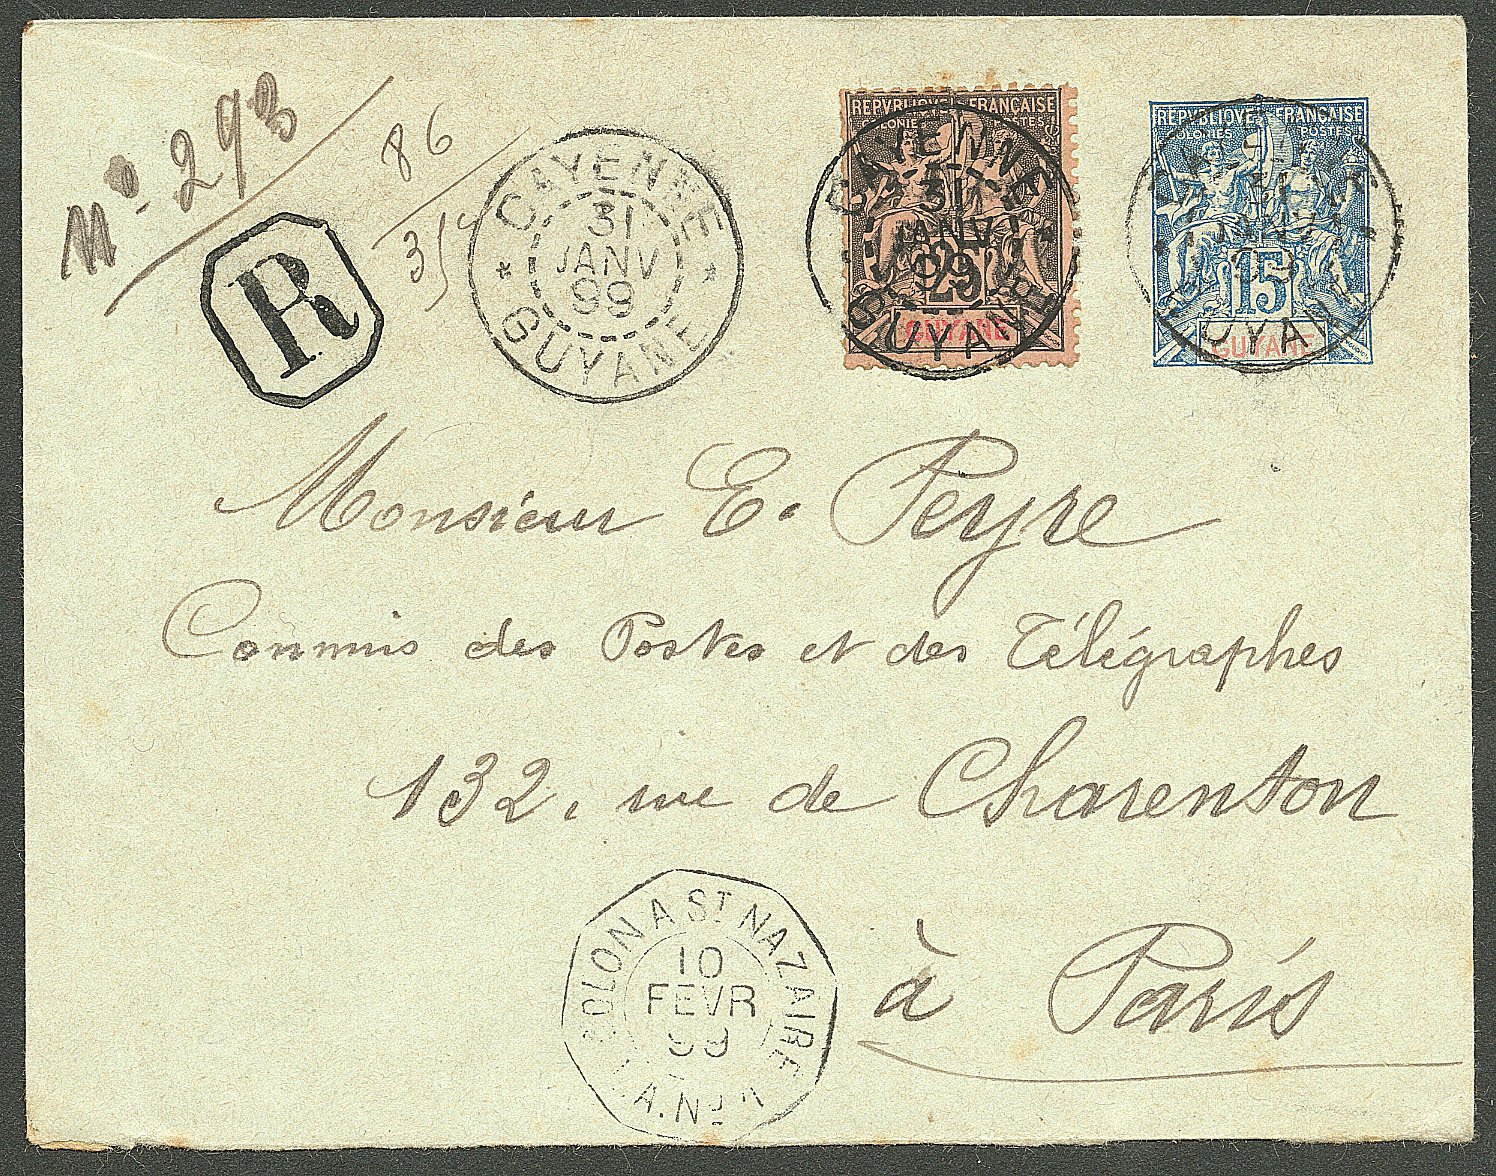 No. 293
86
R
CAYENNE
31
JANV
99
GUYANE
REPVBLIQVE FRANÇAISE
COLONIES POSTES
CAYENNE
31
JANV
99
GUYANE
GUYANE
REPVBLIQVE FRANÇAISE
COLONIES POSTES
15
GUYANE
GUYANE
Monsieur E. Peyre
Commis des Postes et des Télégraphes
132, rue de Charenton
à Paris
COLON A ST NAZAIRE
10
FEVR
99
L.A. No